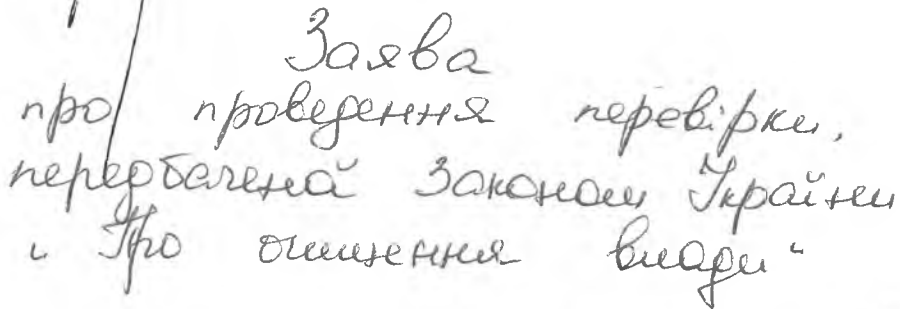 Заява
про проведення перевірки,
передбаченой Законом України
„ Про очищення влади“